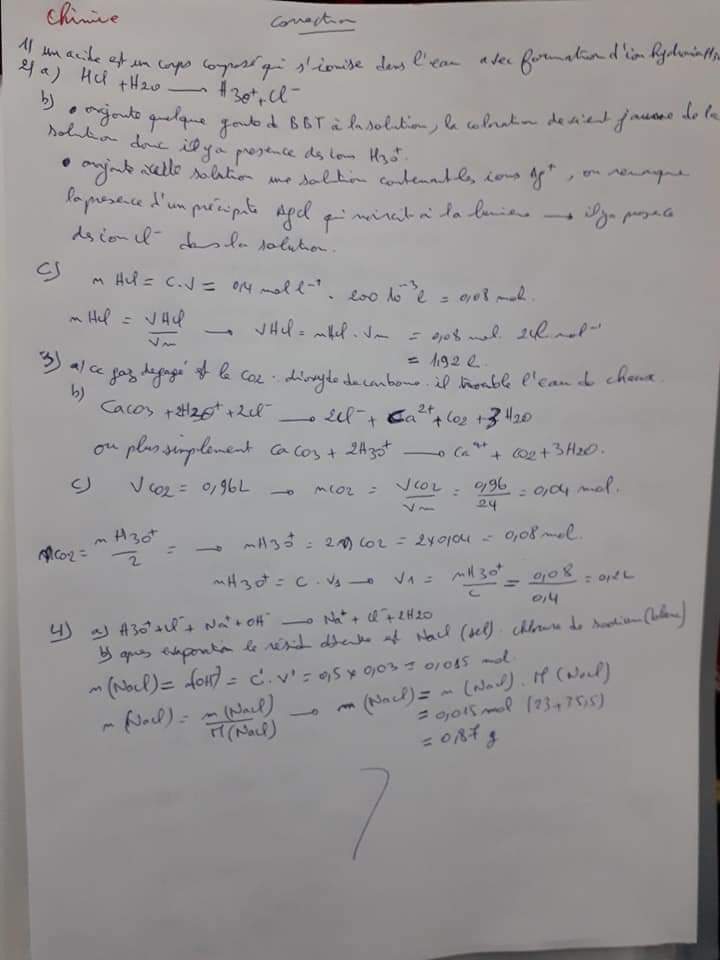 Chimie
Correction
1) un acide est un corps composé qui s'ionise dans l'eau avec formation d'ion hydronium
2) a) HCl + H2O → H3O+ + Cl-
b) • on ajoute quelque goute d BBT à la solution, la coloration devient jaune de la
solution donc il y a presence des ions H3O+.
• on ajoute à cette solution une solution contenant les ions Ag+, on remarque
la presence d'un précipité AgCl qui noircit à la lumière → il y a presence
des ion Cl- dans la solution.
c) n HCl = C.V = 0,4 mol l-1 . 200 10-3 l = 0,08 mol.
n HCl = VHCl / Vm → VHCl = nHCl . Vm = 0,08 mol. 24L mol-1
= 1,92 l.
3) a) ce gaz dégagé est le CO2 . dioxyde de carbone . il trouble l'eau de chaux.
b) CaCO3 + 2H3O+ + 2Cl- → 2Cl- + Ca2+ + CO2 + 3H2O
ou plus simplement CaCO3 + 2H3O+ → Ca2+ + CO2 + 3H2O.
c) VCO2 = 0,96L → nCO2 = VCO2 / Vm = 0,96 / 24 = 0,04 mol.
nCO2 = nH3O+ / 2 = → nH3O+ = 2nCO2 = 2x0,04 = 0,08 mol.
nH3O+ = C . V1 → V1 = nH3O+ / C = 0,08 / 0,4 = 0,2L
4) a) H3O+ + Cl- + Na+ + OH- → Na+ + Cl- + 2H2O
b) apres evaporation le résidu obtenu est NaCl (sel) . chlorure de sodium (blanc)
n(NaCl) = n(OH-) = C'.V' = 0,5 x 0,03 = 0,015 mol
n(NaCl) = m(NaCl) / M(NaCl) → m(NaCl) = n(NaCl) . M(NaCl)
= 0,015 mol (23+35,5)
= 0,87 g